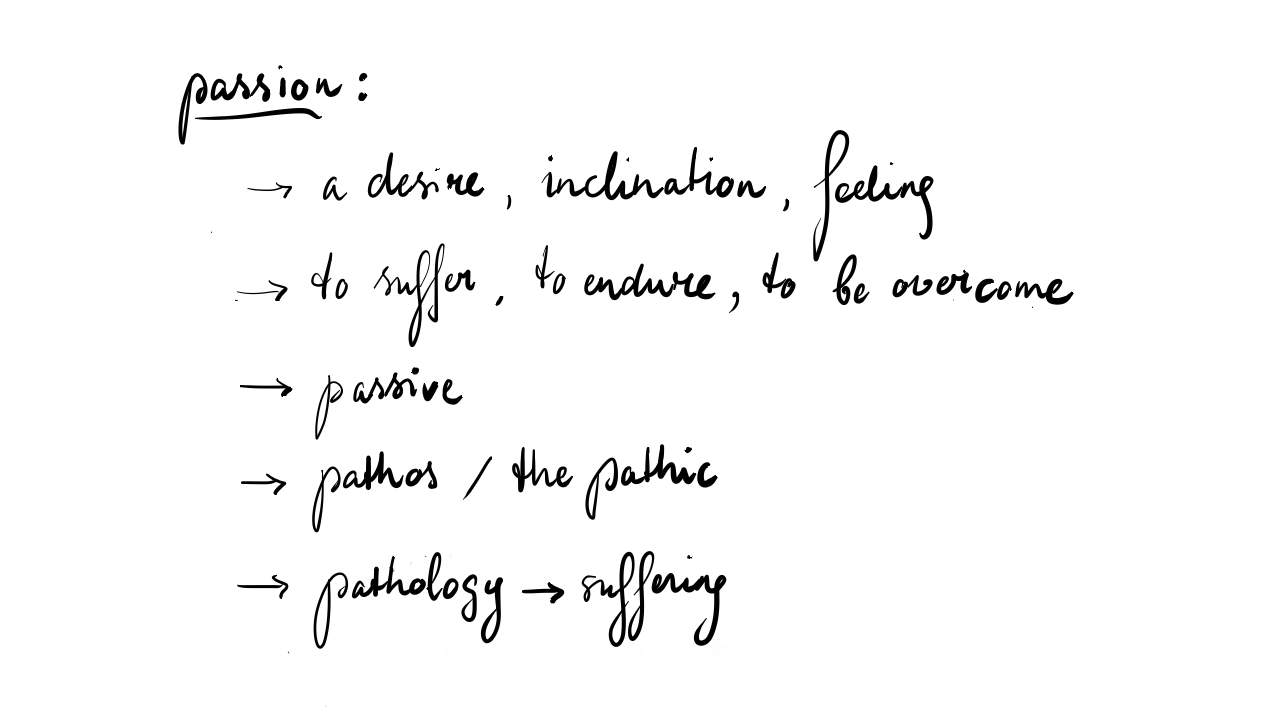 passion:
→ a desire, inclination, feeling
→ to suffer, to endure, to be overcome
→ passive
→ pathos / the pathic
→ pathology → suffering